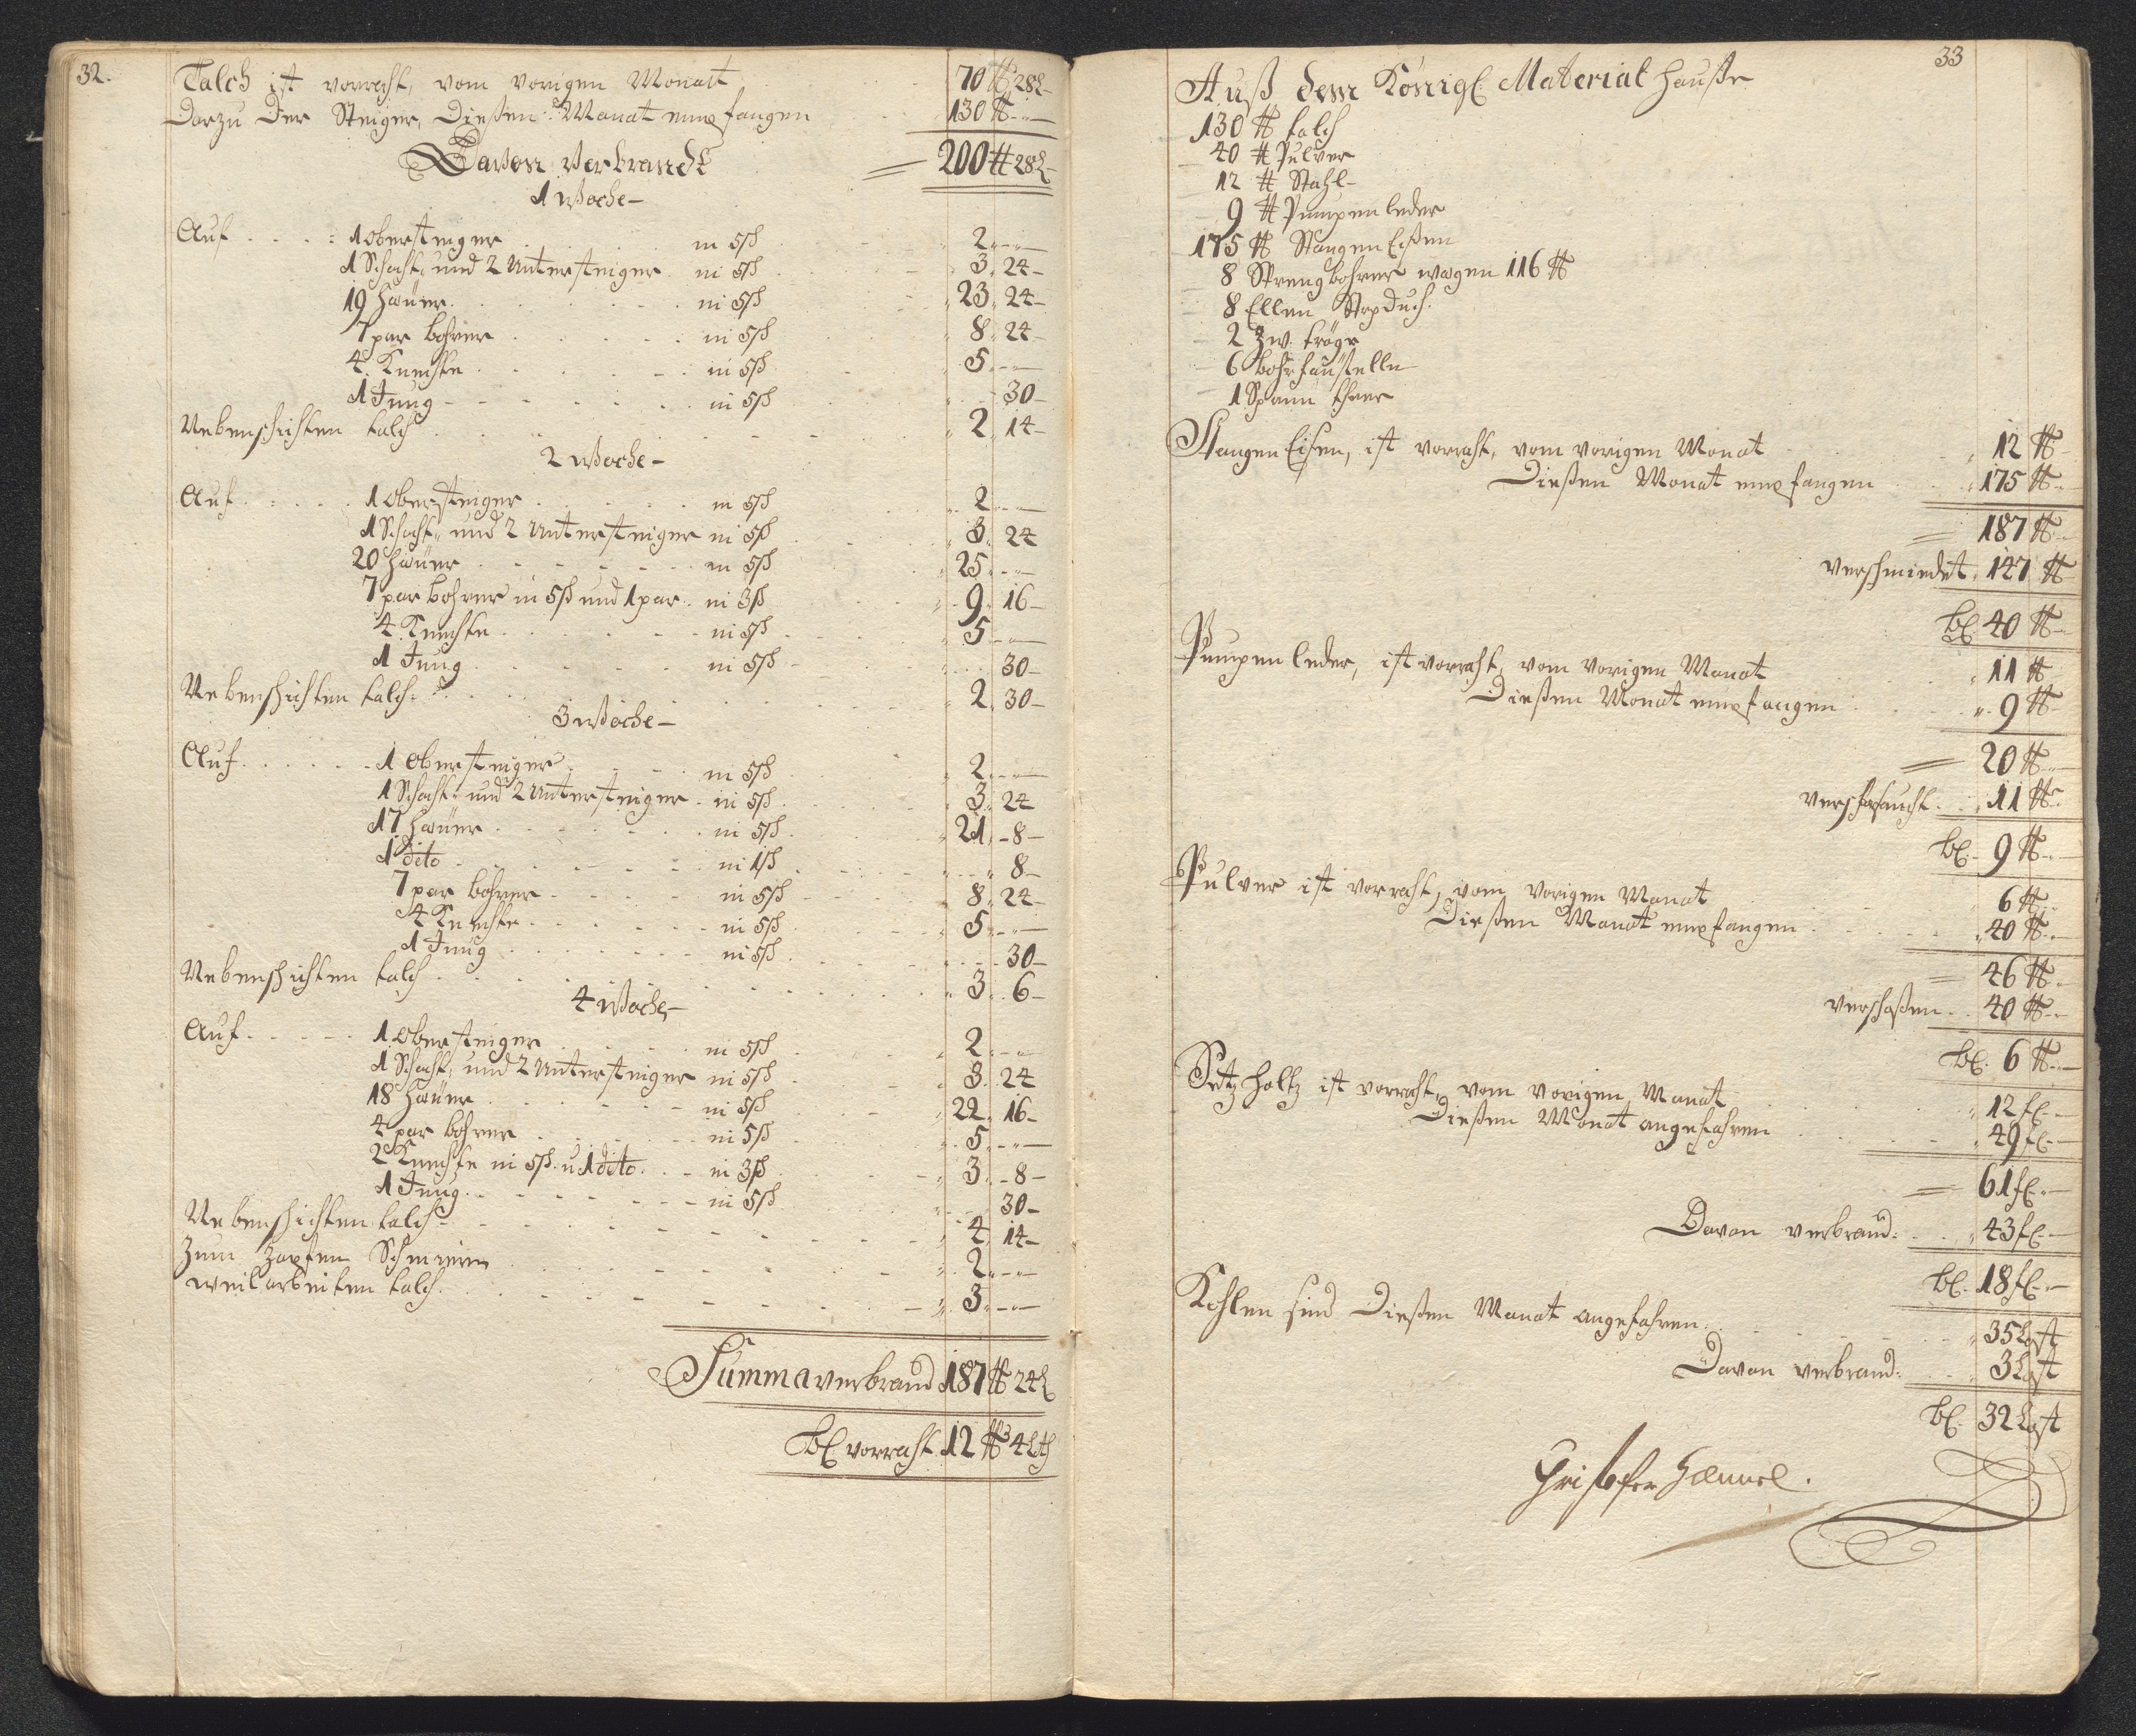 32.
Talch ist vorraht, vom vorigen Monatt 70 ℔ 28 L
Darzu Der Steiger, Dießen Monat empfangen 130 ℔ -„-
Davon Verbrandt = 200 ℔ 28 L
1 Woche -
Auf . . . . 1 obersteiger in 5 ß 2 „ -
1 Schaht, und 2 Untersteiger in 5 ß 3 „ 24 -
19 Hauer in 5 ß 23 „ 24 -
7 par bohrer in 5 ß 8 „ 24 -
4 Knechte in 5 ß 5 „ -
1 Jung in 5 ß 30 -
Nebenschichten talch 2 „ 14 -
2 Woche -
Auf . . . . 1 obersteiger in 5 ß 2 „ -
1 Schaht, und 2 Untersteiger in 5 ß 3 „ 24
20 Hauer in 5 ß 25 „ -
7 par bohrer in 5 ß und 1 par in 3 ß 9 „ 16 -
4 Knechte in 5 ß 5 „ -
1 Jung in 5 ß 30 -
Nebenschichten talch 2 „ 30 -
3 Woche -
Auf . . . . 1 obersteiger in 5 ß 2 „ -
1 Schaht, und 2 Untersteiger in 5 ß 3 „ 24
17 Hauer in 5 ß 21 „ 8 -
1 dito in 1 ß 8 -
7 par bohrer in 5 ß 8 „ 24 -
4 Knechte in 5 ß 5 „ -
1 Jung in 5 ß 30 -
Nebenschichten talch 3 „ 6 -
4 Woche -
Auf . . . . 1 obersteiger in 5 ß 2 „ -
1 Schaht, und 2 Untersteiger in 5 ß 3 „ 24
18 Hauer in 5 ß 22 „ 16 -
4 par bohrer in 5 ß 5 „ -
2 Knechte in 5 ß u. 1 dito in 3 ß 3 „ 8 -
1 Jung in 5 ß 30 -
Nebenschichten talch 4 „ 14 -
Zum Zapfen Schmieren 2 „ -
weilarbeiten talch 3 „ -
Summa verbrand 187 ℔ 24 L
bl. vorraht 12 ℔ 4 Lth
33
Auß dem Königl. Material Hauße
130 ℔ talch
40 ℔ Pulver
12 ℔ Stahl -
9 ℔ Pumpen leder
175 ℔ Stangen Eißen
8 Strengbohrer wogen 116 ℔
8 Ellen
2 Zw. tröge
6 bohrfäustelle
1 Spann
Stangen Eisen, ist vorraht, vom vorigen Monat 12 ℔
Dießen Monat empfangen 175 ℔
= 187 ℔
verschmiedet 147 ℔
bl. 40 ℔
Pumpen leder, ist vorraht, vom vorigen Monat 11 ℔
Dießen Monat empfangen 9 ℔
= 20 ℔
11 ℔
bl. 9 ℔
Pulver ist vorraht, vom vorigen Monat 6 ℔
Dießen Monat empfangen 40 ℔
= 46 ℔
verschoßen 40 ℔
bl. 6 ℔
Setzholtz ist vorraht, vom vorigen Monat 12 fl.
Dießen Monat angefahren 49 fl.
= 61 fl.
Davon verbrand: 43 fl.
bl. 18 fl.
Kohlen sind Dießen Monat angefahren 35 Last
Davon verbrand: 3 Last
bl. 32 Last